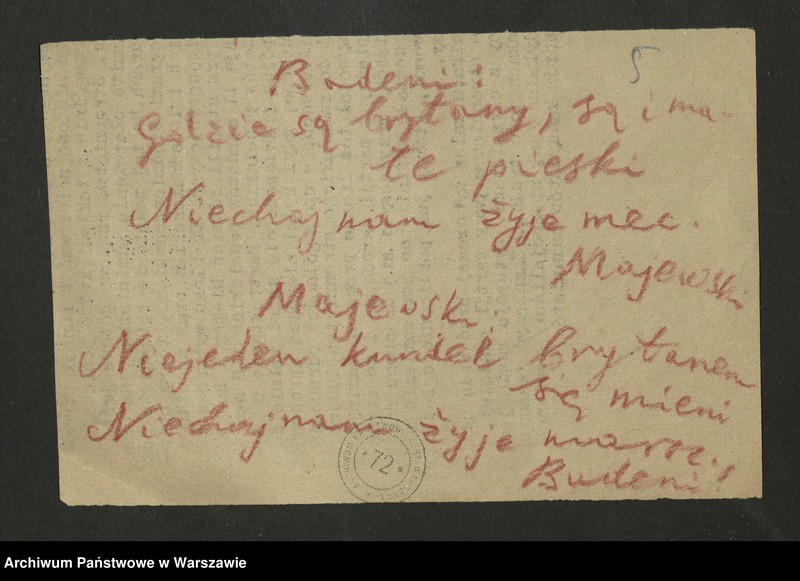 5
Badeni:
Gdzie są brytany, są i ma-
łe pieski
Niechaj nam żyje mec.
Majewski
Majewski:
Niejeden kundel brytanem
się mieni
Niechaj nam żyje marsz.
Badeni!
72
Archiwum Państwowe w Warszawie